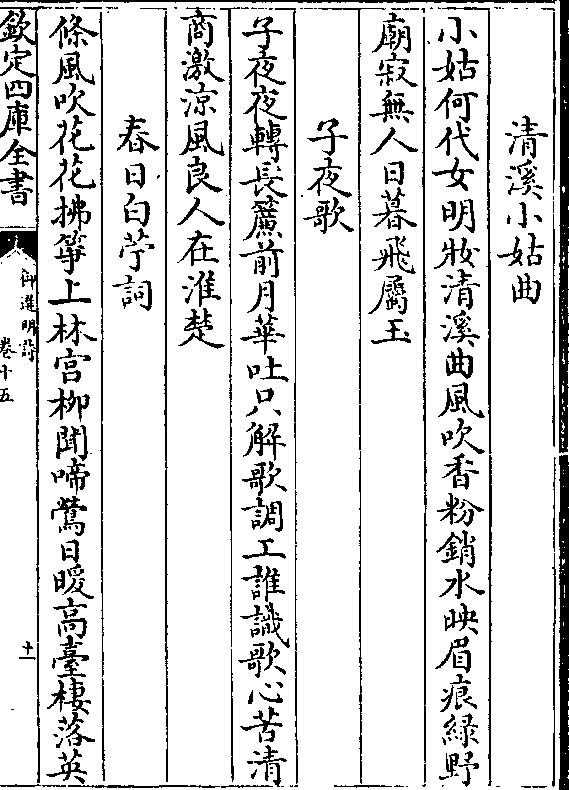 清溪小姑曲
小姑何代女明妝清溪曲風吹香粉銷水映眉痕綠野
廟寂無人日暮飛屬玉
子夜歌
子夜夜轉長簾前月華吐只解歌調工誰識歌心苦清
商激涼風良人在淮楚
春日白苧詞
條風吹花花拂箏上林宮柳聞啼鶯日暖高臺棲落英
欽定四庫全書
御選明詩
卷十五
十一